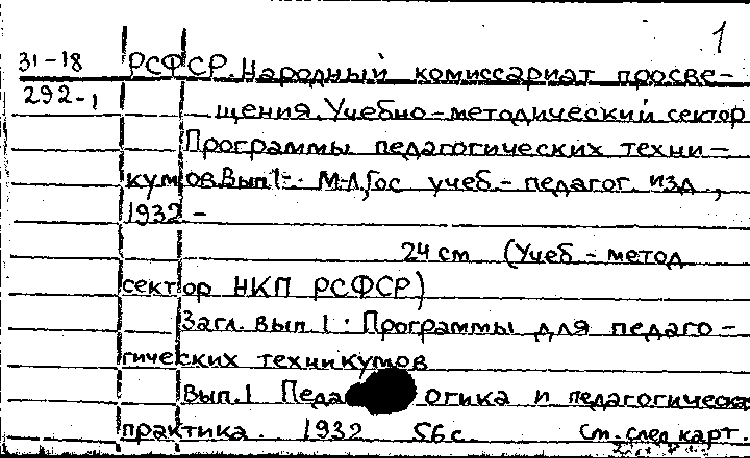 1
31-18 РСФСР. Народный комиссариат просве-
292-1 щения. Учебно-методический сектор
Программы педагогических техни-
кумов. Вып. 1- . М-Л, Гос учеб.- педагог. изд,
1932 -
24 см (Учеб - метод
сектор НКП РСФСР)
Загл. вып. 1 : Программы для педаго-
гических техникумов
Вып. 1 Педа огика и педагогическа
практика. 1932 56 с. См. след карт.